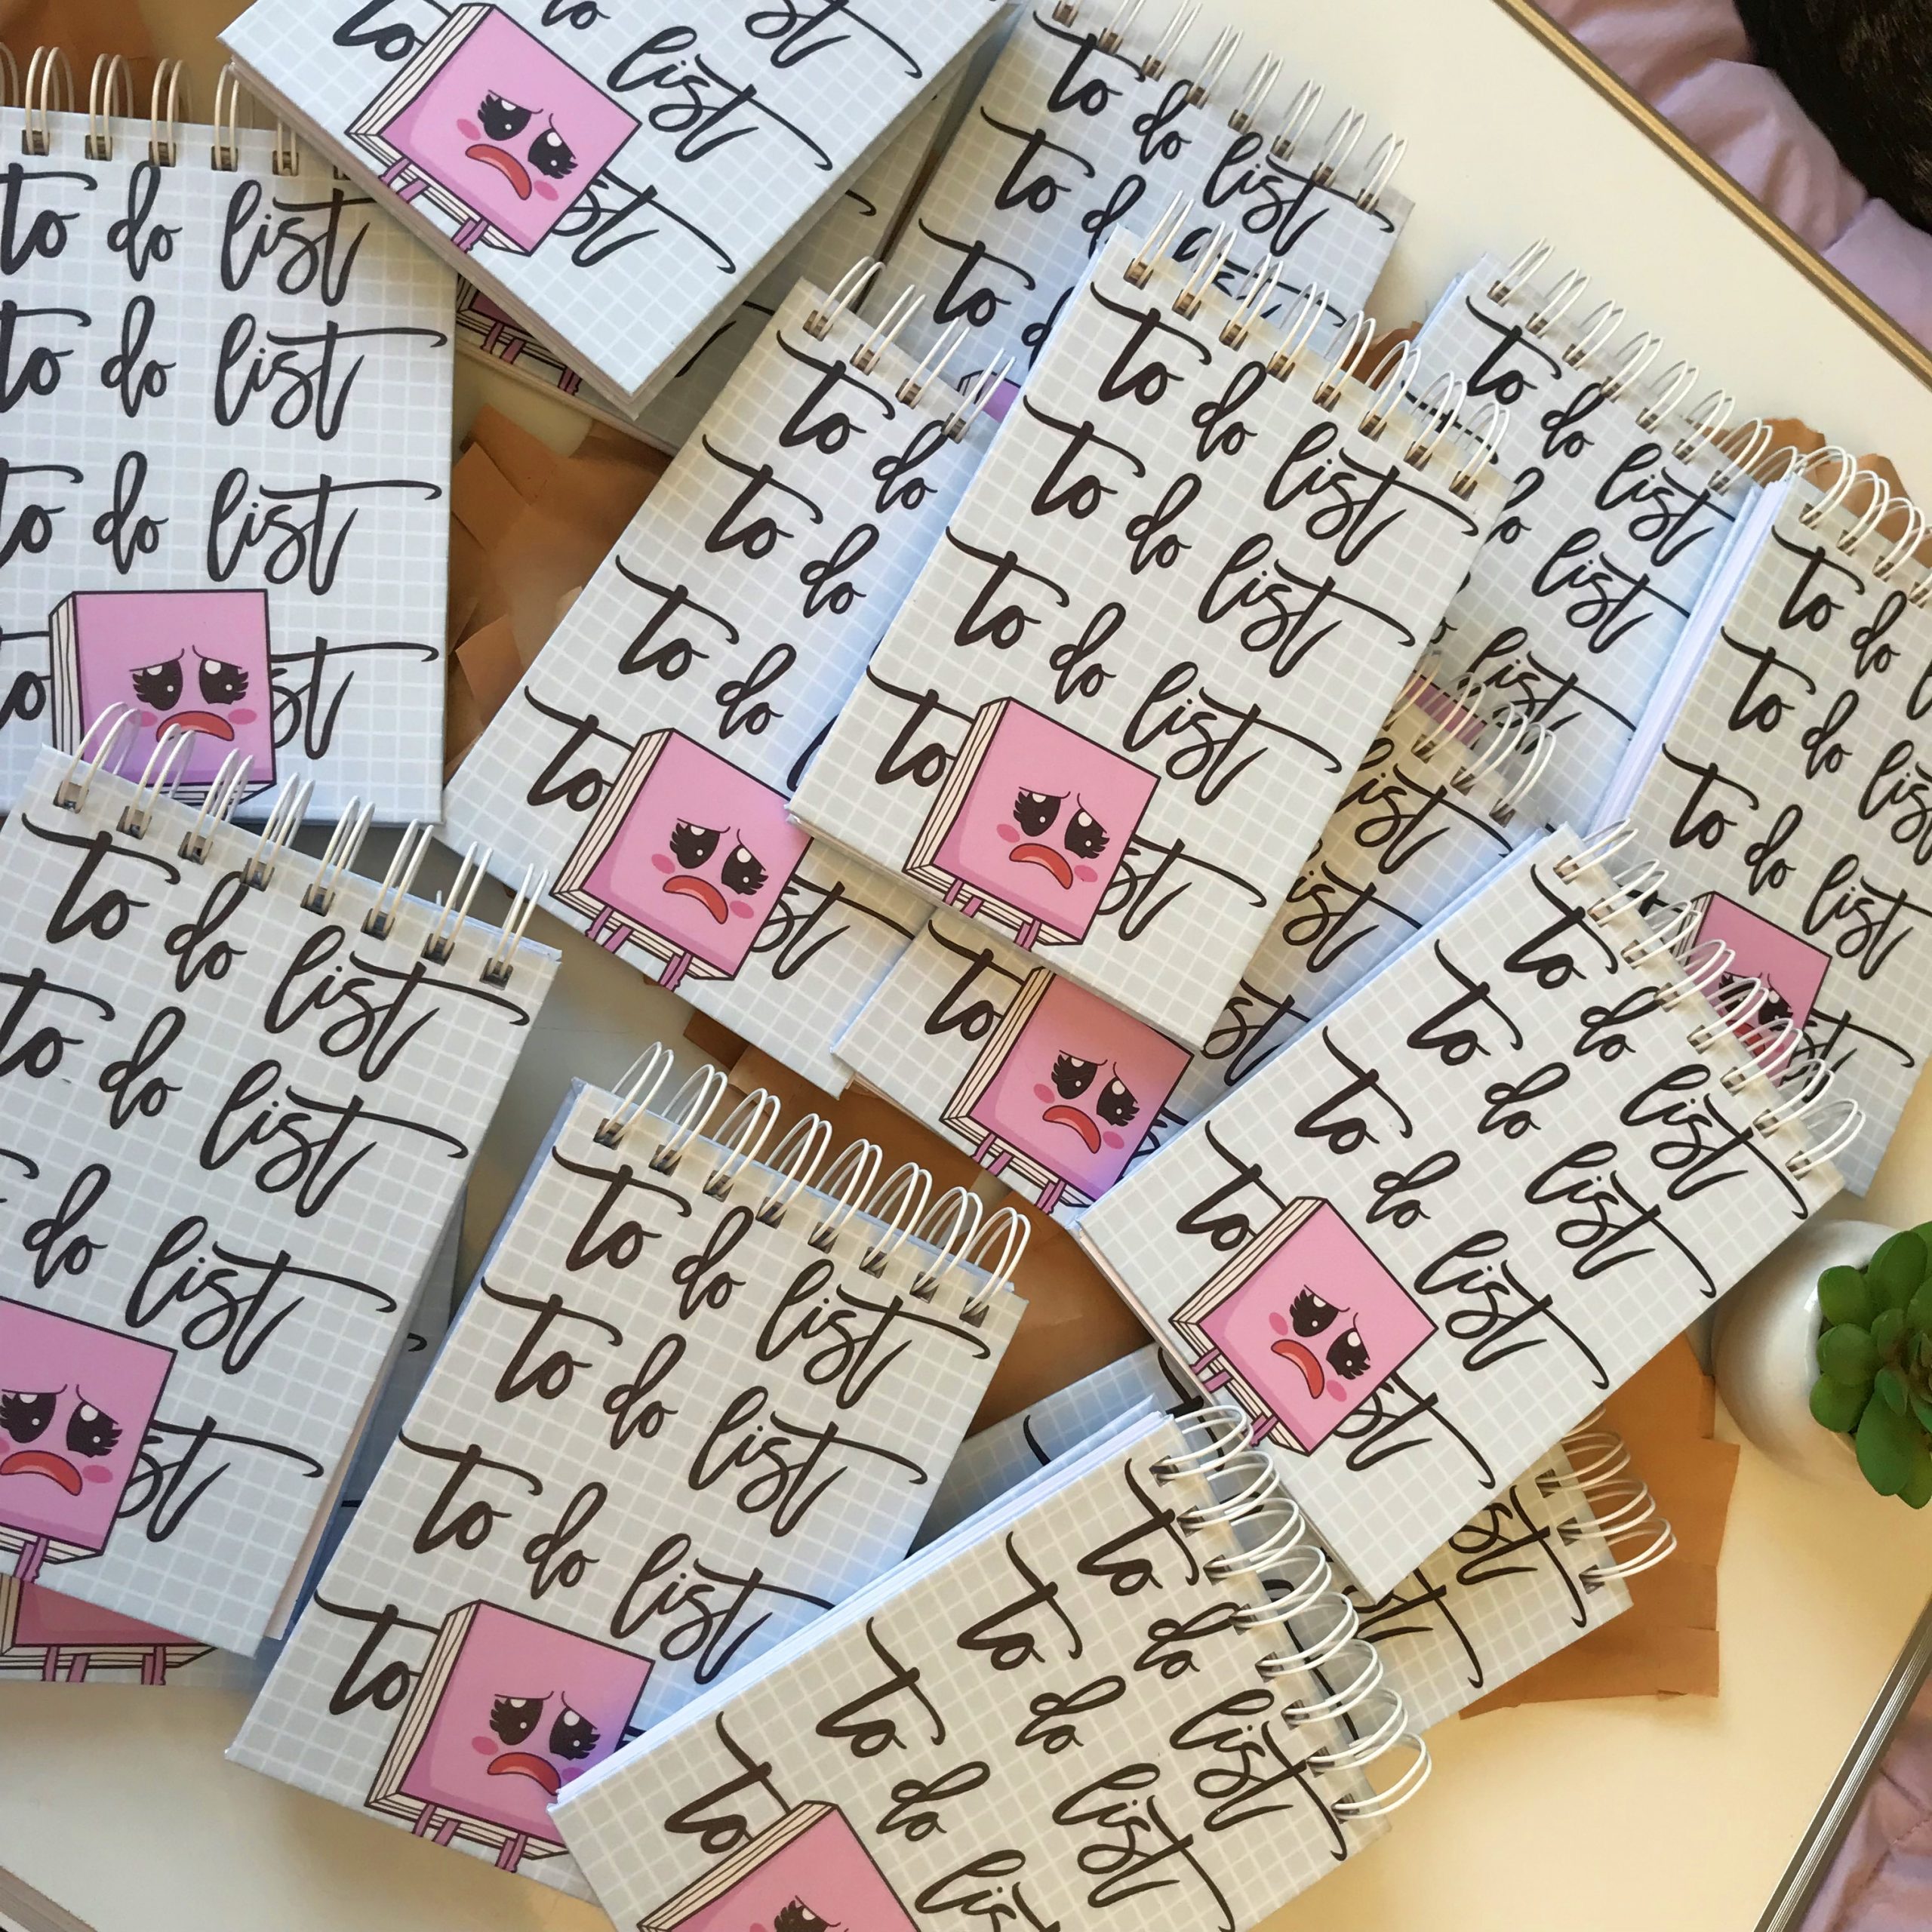 list
to list
to
to do list
to do list
to do list
to
to do list
to
to
to do list
to do list
to do list
to
to do
to do
to do
to
to do list
do list
list
to do
to do
to do list
list
list
to
to do list
to do list
to do list
to
to do list
to do list
do list
to do list
to do list
to do list
to
to do list
to do list
to do
to